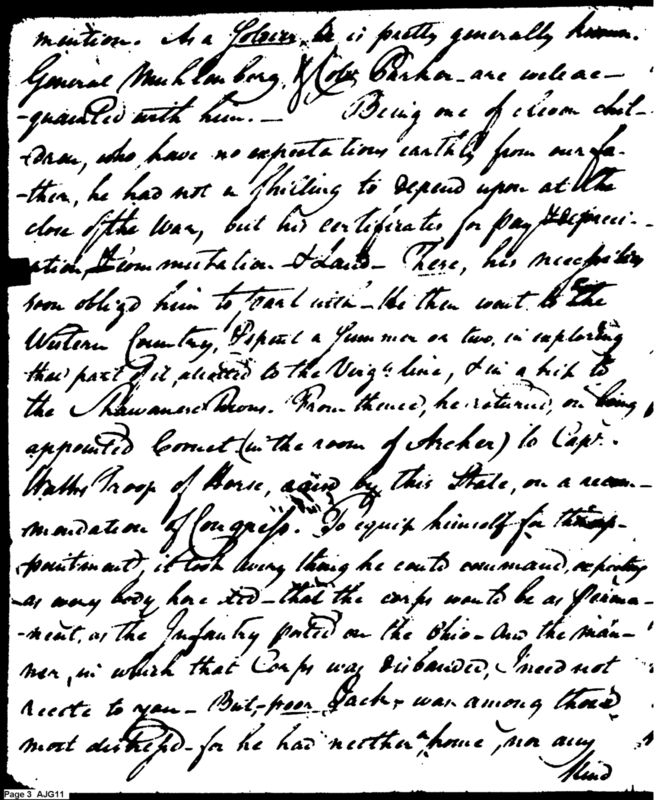 mention. As a Soldier, he is pretty generally known.
General Muhlenberg, & Colo. Parker - are well ac-
-quainted with him. - Being one of eleven chil-
-dren, who have no expectations earthly from our fa-
-ther, he had not a shilling to depend upon at the
close of the War, but his certificates for pay & depreci-
-ation, & commutation & Land - These, his necessities
soon oblig'd him to part with - He then went to the
Western Country, & spent a Summer or two, in exploring
that part of it, allotted to the Virga. line, & in a trip to
the Shawanese Towns. From thence, he returned, on being
appointed Cornet (in the room of Archer) to Capt.
Troop of Horse, raised by this State, on a recom-
mendation of Congress. To equip himself for this ap-
-pointment, it took every thing he could command, expecting
- as every body here did - that the corps would be as perma-
-nent, as the Infantry posted on the Ohio - And the man-
ner, in which that Corps was disbanded, I need not
recite to you - But, poor Jack, was among those
most distress'd - for he had neither a home, nor any
kind
Page 3 AJG11